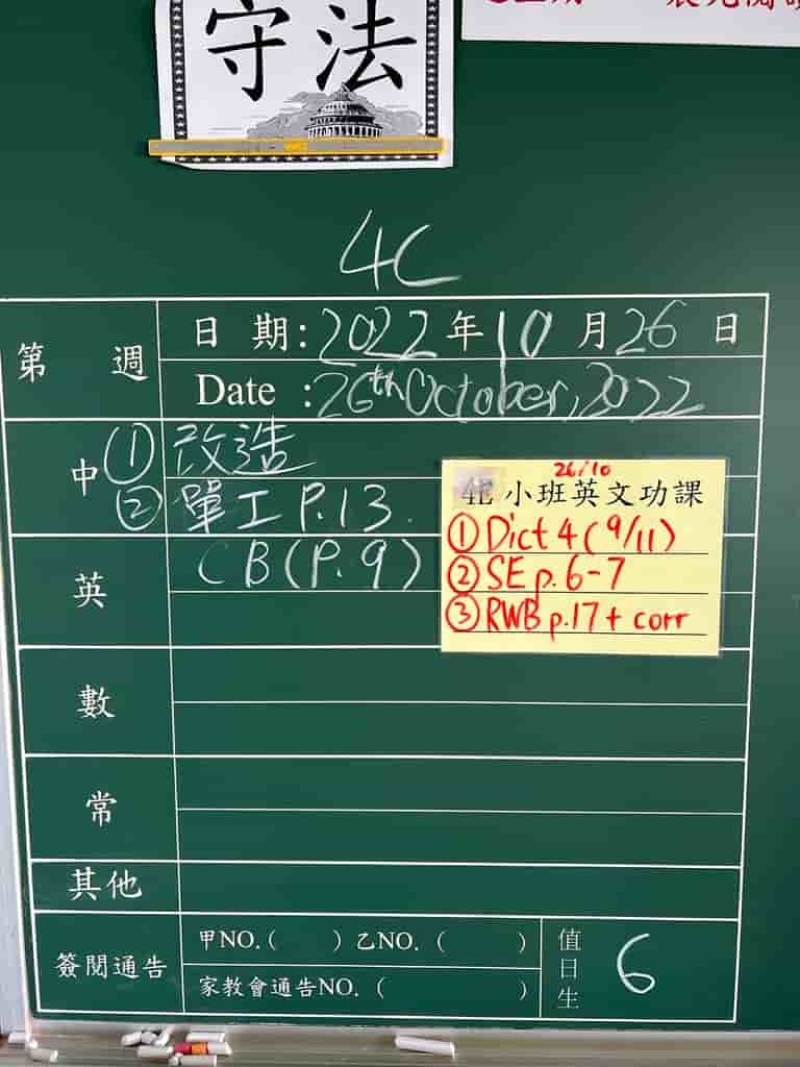 守法
4C
第 週
日期:2022年10月26日
Date :26th October, 2022
中 ① 改造
② 單工 P.13.
英 CB(P.9)
26/10
小班英文功課
① Dict 4 (9/11)
② SE p.6-7
③ RWB p.17 + corr
數
常
其他
簽閱通告 甲NO.( ) 乙NO.( )
家教會通告NO.( )
值日生 6